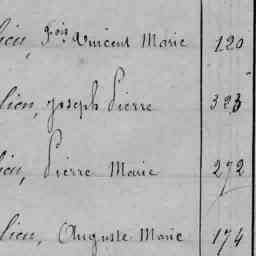 lieu, Fois Vincent Marie 120
lieu, Joseph Pierre 323
lieu, Pierre Marie 272
lieu, Auguste Marie 174